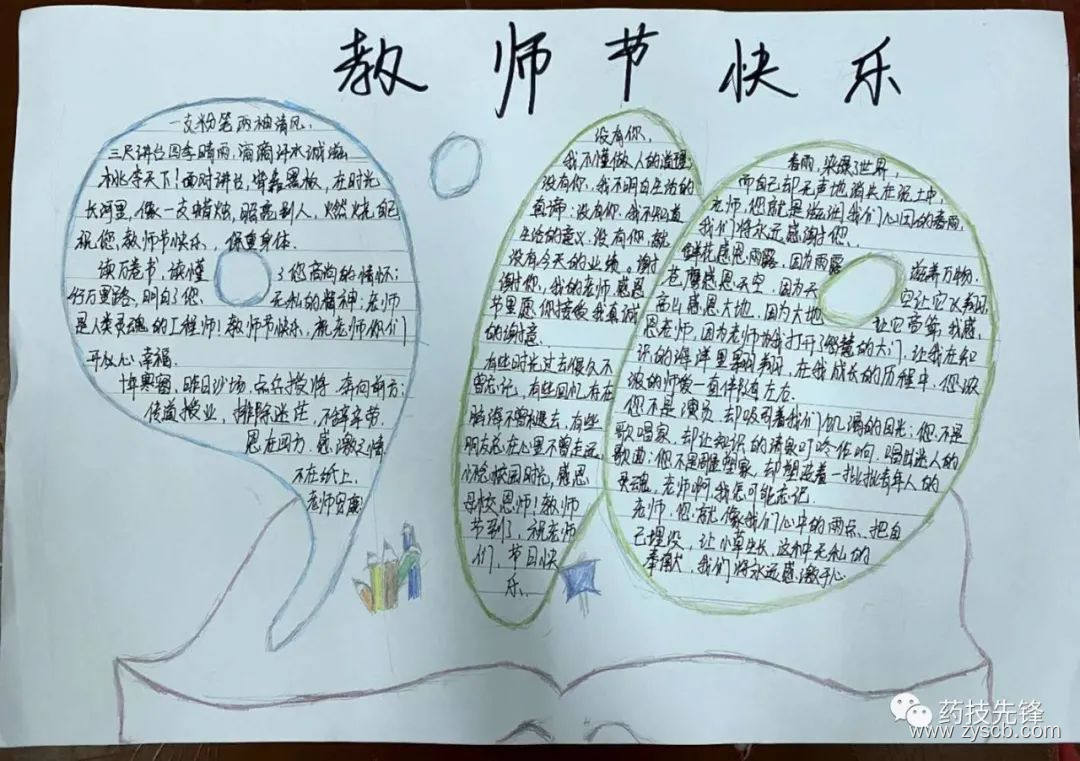 教师节快乐
一支粉笔两袖清风，
三尺讲台四季晴雨，滴滴汗水诚滋
桃李天下！面对讲台，背靠黑板，在时光
长河里，像一支蜡烛，照亮别人，燃烧自己
祝您教师节快乐，保重身体．
读万卷书，读懂了您高尚的情怀；
行万里路，明白了您无私的精神；老师
是人类灵魂的工程师！教师节快乐，祝老师你们
开心幸福．
十年寒窗，昨日沙场，点兵授将，奔向前方；
传道授业，排除迷茫，不辞辛劳．
恩在四方，感激之情
不在纸上，
老师安康
没有你，
我不懂做人的道理；
没有你，我不明白生活的
真谛；没有你，我不知道
生活的意义．没有你，就
没有今天的业绩。谢
谢你，我的老师，感恩
节里愿你接受我真诚
的谢意．
有些时光过去很久不
曾忘记，有些回忆存在
脑海不曾褪去，有些
朋友总在心里不曾走远，
校园时光，感恩
母校恩师！教师
节到了，祝老师
们，节日快
乐．
春雨，染绿了世界，
而自己却无声地消失在泥土中，
老师，您就是滋润我们心田的春雨，
我们将永远感谢您．
鲜花感恩雨露，因为雨露滋养万物．
苍鹰感恩天空，因为天空让它飞翔，
高山感恩大地，因为大地让它高耸，我感
恩老师，因为老师为我打开了智慧的大门，让我在知
识的海洋里翱翔，在我成长的历程中，您浓
浓的师爱一直伴随左右．
您不是演员，却吸引着我们饥渴的目光；您不是
歌唱家，却让知识的清泉叮咚作响，唱出迷人的
歌曲；您不是雕塑家，却塑造着一批批青年人的
灵魂，老师啊，我怎可能忘记．
老师，您就像我们心中的雨点，把自
己埋没，让小草生长，这种无私的
奉献，我们将永远感激于心
药技先锋
www.zyscb.com